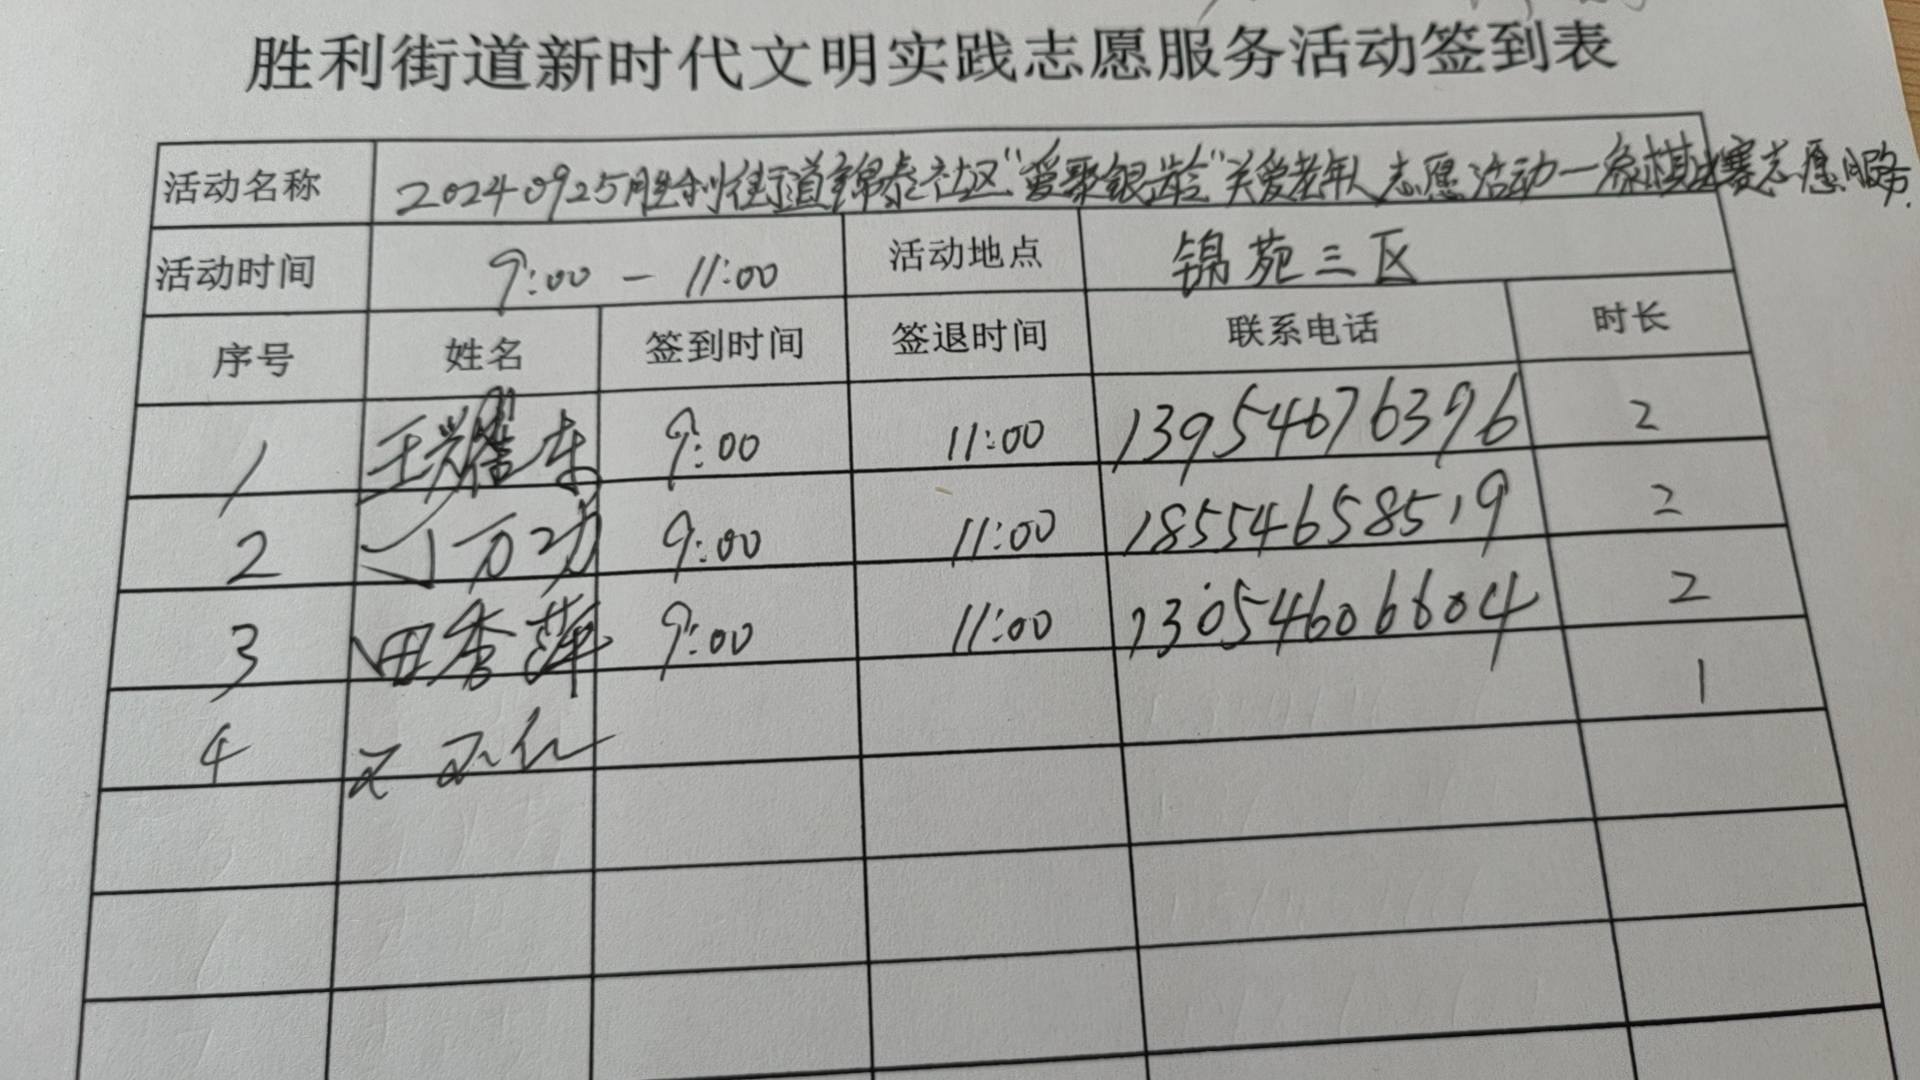 胜利街道新时代文明实践志愿服务活动签到表
活动名称 20240925胜利街道锦泰社区“爱聚银龄”关爱老年人志愿活动一象棋比赛志愿服务.
活动时间 9:00 - 11:00 活动地点 锦苑三区
序号 姓名 签到时间 签退时间 联系电话 时长
1 王耀东 9:00 11:00 13954676396 2
2 丁万功 9:00 11:00 18554658519 2
3 田秀萍 9:00 11:00 13054606604 2
4 1